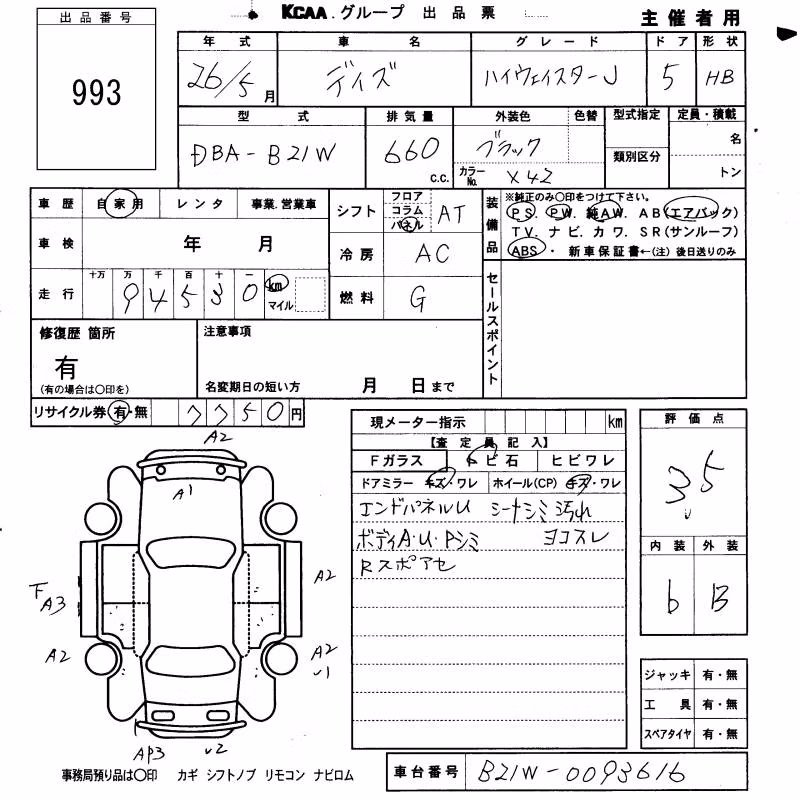 KCAA.グループ 出品票
主催者用
出品番号
993
年式 車名 グレード ドア 形状
26/5月 デイズ ハイウェイスターJ 5 HB
型式 排気量 外装色 色替 型式指定 定員・積載
DBA-B21W 660 c.c. ブラック 類別区分 名
カラーNo. X42 トン
車歴 自家用 レンタ 事業.営業車
車検 年 月
走行 十万 万 千 百 十 一
94530 km マイル
シフト フロア コラム パネル AT
冷房 AC
燃料 G
装備品
※純正のみ○印をつけて下さい。
PS. PW. 純AW. AB(エアバック)
TV. ナビ. カワ. SR(サンルーフ)
ABS・新車保証書←(注)後日送りのみ
セールスポイント
修復歴 箇所
有
(有の場合は○印を)
注意事項
名変期日の短い方 月 日まで
リサイクル券 有・無 7750円
現メーター指示 km
【査定員記入】
Fガラス トビ石 ヒビワレ
ドアミラー キズ・ワレ ホイール(CP) キズ・ワレ
エンドパネルU シートシミ汚れ
ボディA・U・Pシミ ヨコスレ
Rスポアセ
評価点
3.5
内装 外装
b B
ジャッキ 有・無
工具 有・無
スペアタイヤ 有・無
A2
A1
A2
下A3
A2
A2
U1
AP3
U2
事務局預り品は○印 カギ シフトノブ リモコン ナビロム
車台番号 B21W-0093616